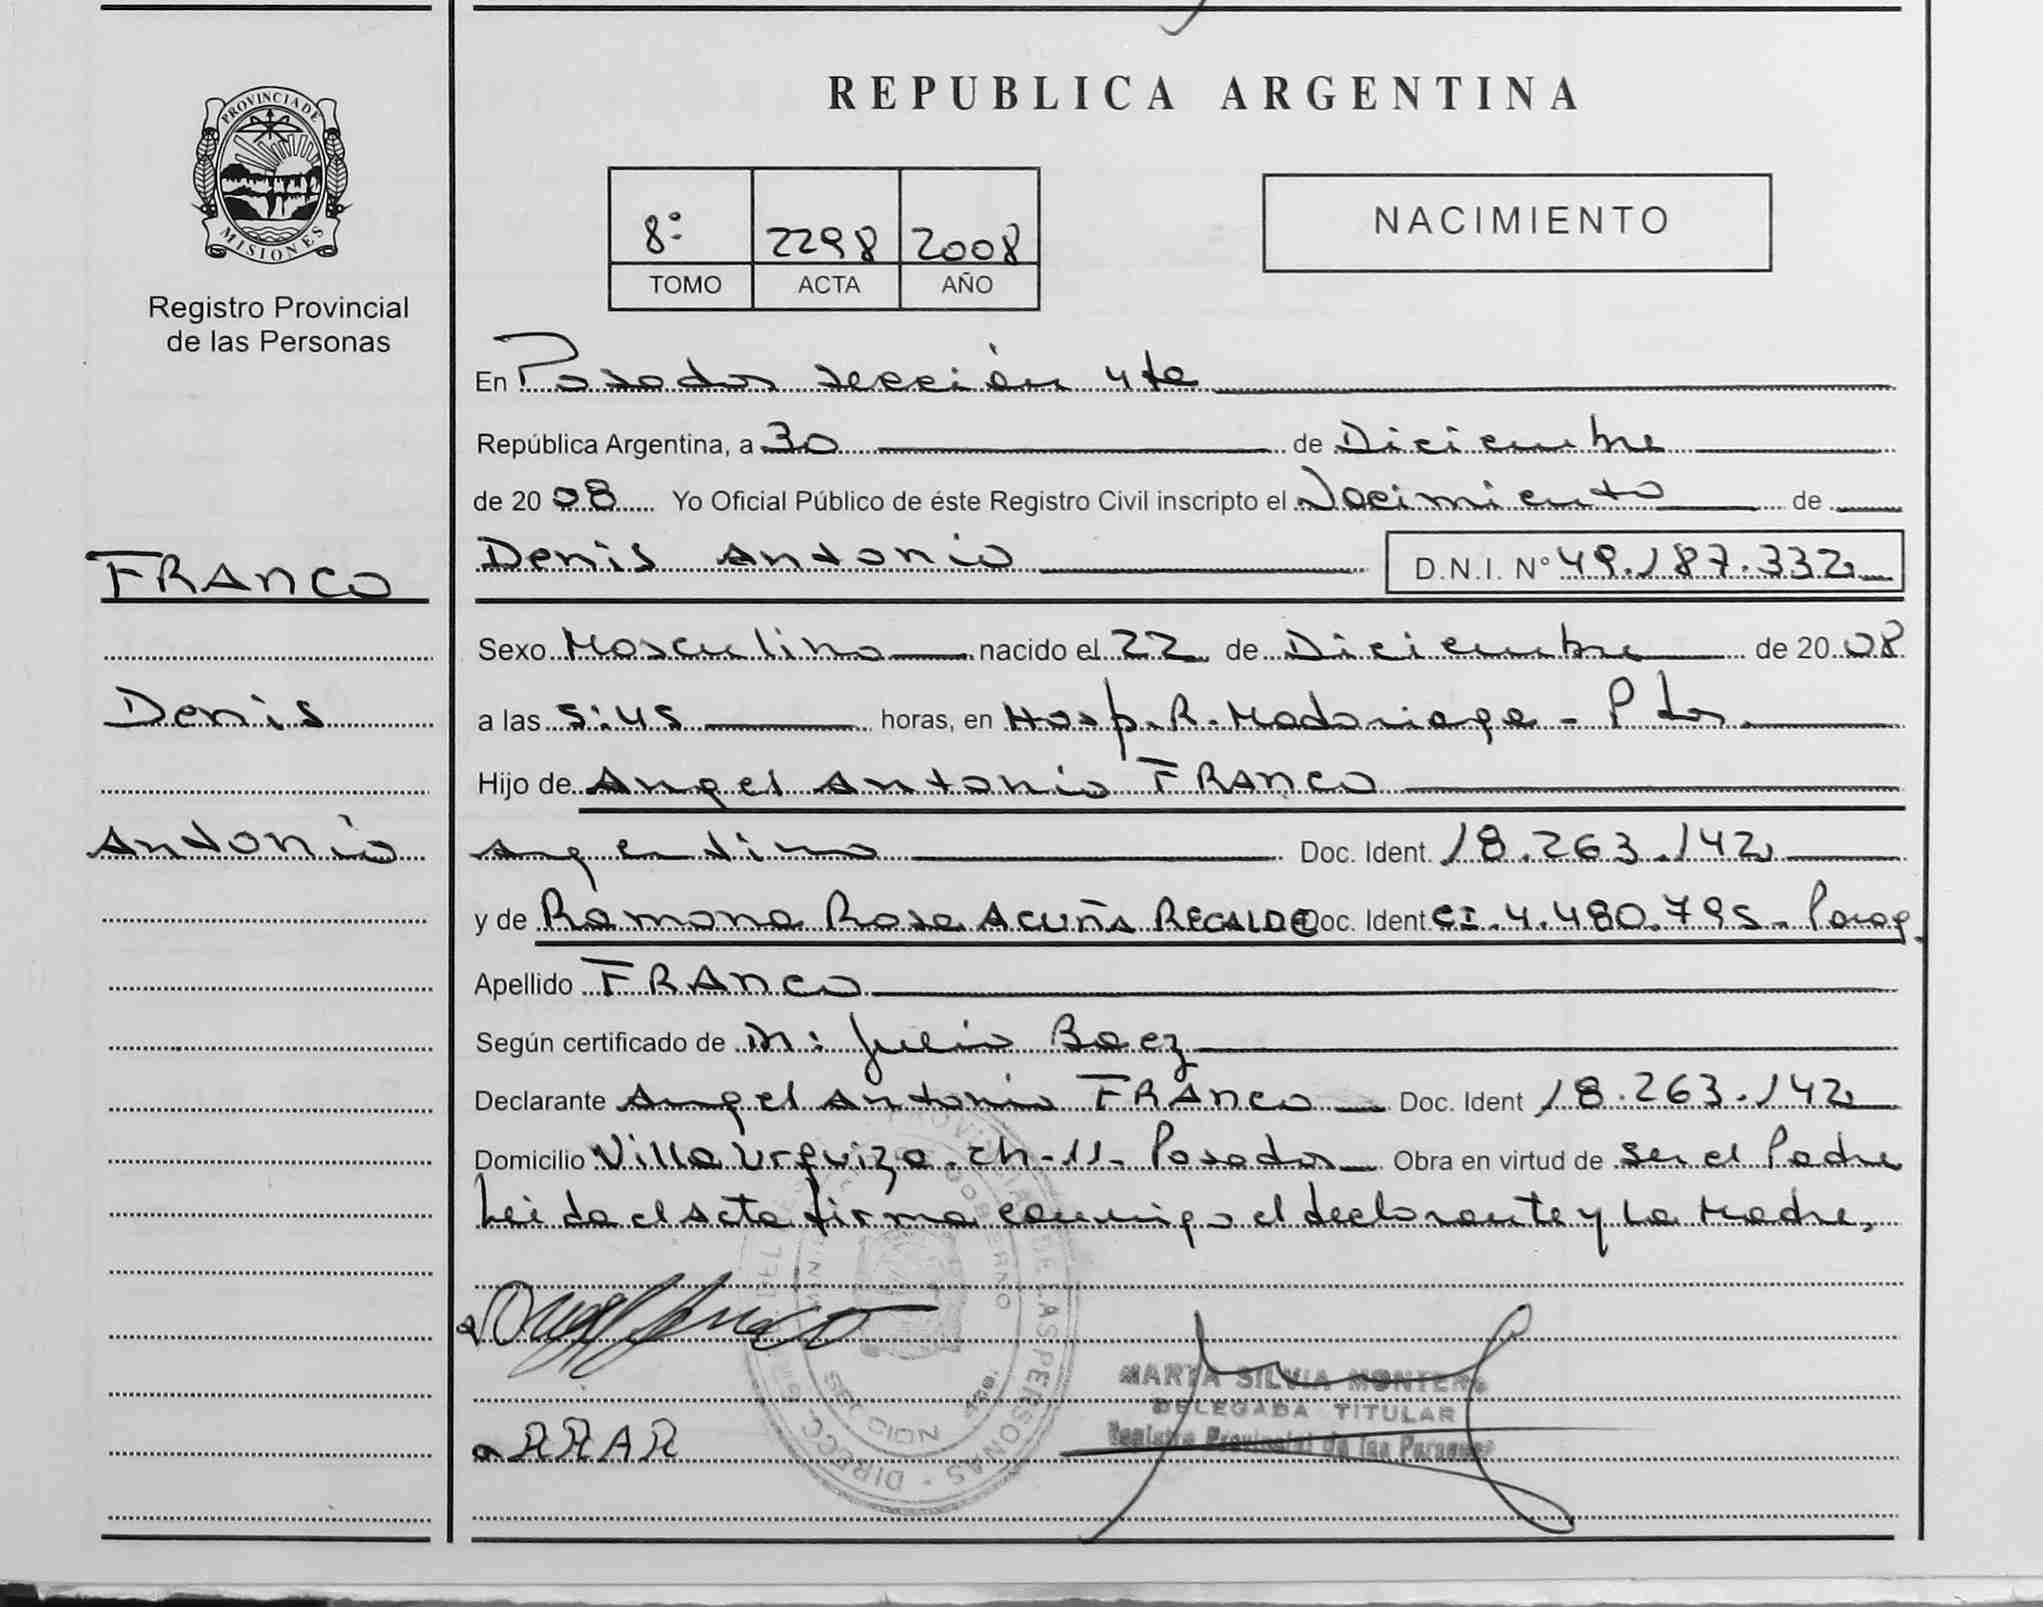 REPUBLICA ARGENTINA
PROVINCIA DE
MISIONES
Registro Provincial
de las Personas
8º 2298 2008
TOMO ACTA AÑO
NACIMIENTO
En Posadas sección 4ta
República Argentina, a 30 de Diciembre
de 20 08 Yo Oficial Público de éste Registro Civil inscripto el Nacimiento de
Denis Antonio D.N.I. Nº 49.187.332
FRANCO
Denis
Antonio
Sexo Masculino nacido el 22 de Diciembre de 20 08
a las 5:45 horas, en Hosp. R. Madariaga - Pdas.
Hijo de Angel Antonio FRANCO
Argentino Doc. Ident. 18.263.142
y de Ramona Rosa ACUÑA RECALDE Doc. Ident CI. 4.480.795 - Parag.
Apellido FRANCO
Según certificado de Julio Baez
Declarante Angel Antonio FRANCO Doc. Ident 18.263.142
Domicilio Villa Urquiza. ch-11- Posadas Obra en virtud de ser el Padre
Leida el Acta firma conmigo el declarante y la Madre.
RRAR
MARTA SILVIA MONTERO
DELEGADA TITULAR
Registro Provincial de las Personas